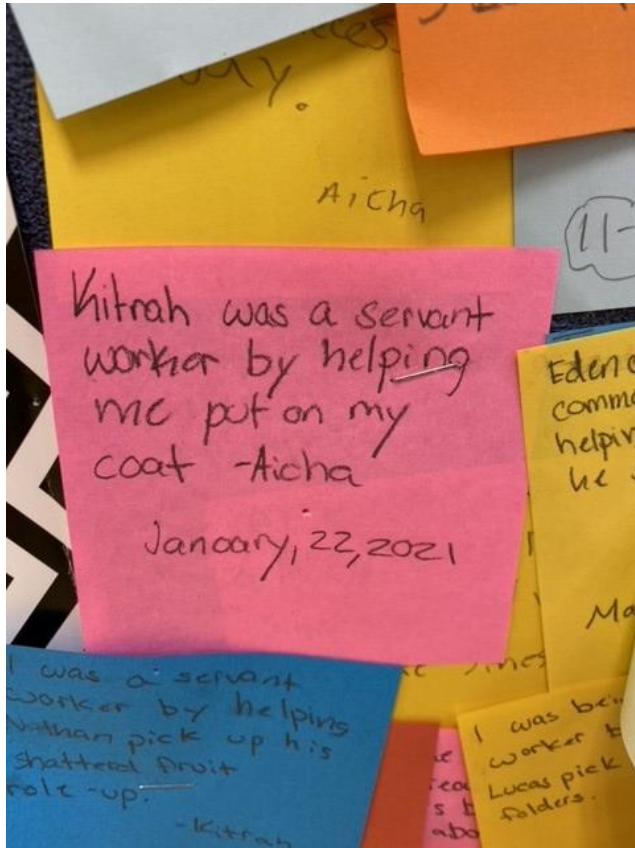 Aicha
11-
Kitrah was a servant
worker by helping
me put on my
coat -Aicha
Janoary, 22, 2021
Eden
comm
helpin
he
Ma
I was a servant
worker by helping
Nathan pick up his
shatterd fruit
role-up.
-Kitrah
I was bein
worker b
Lucas pick
folders.
abo